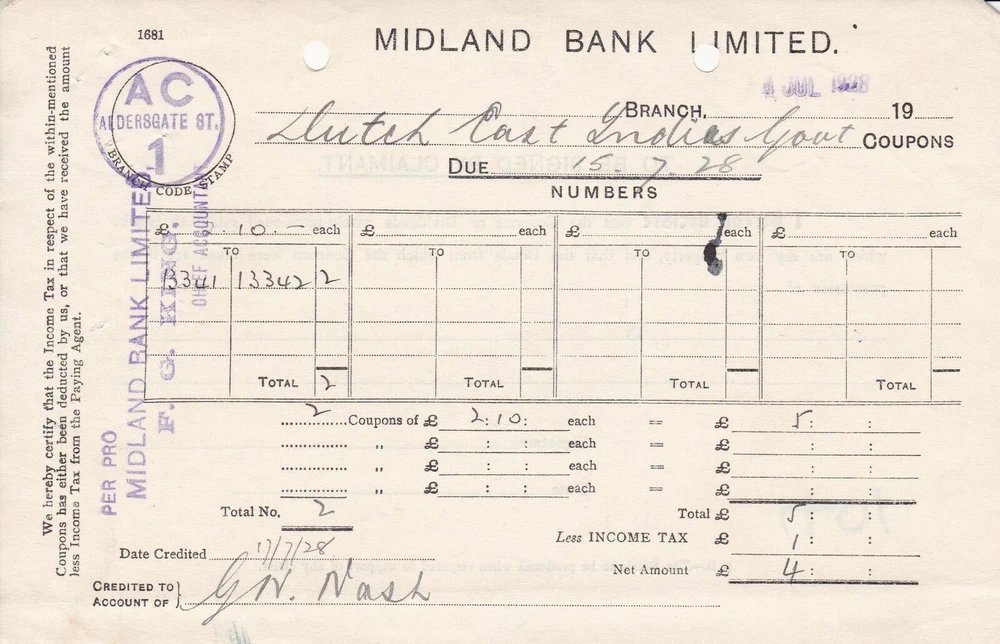 1681
MIDLAND BANK LIMITED.
AC
ALDERSGATE ST.
1
BRANCH CODE STAMP
4 JUL 1928
BRANCH, 19
Dutch East Indies Govt COUPONS
DUE 15.7.28
NUMBERS
£ 2.10.- each £ each £ each £ each
TO TO TO TO
13341 13342 2
TOTAL 2 TOTAL TOTAL TOTAL
2 Coupons of £ 2:10: each = £ 5: :
" £ : : each = £ : :
" £ : : each = £ : :
" £ : : each = £ : :
Total No. 2 Total £ 5: :
Less INCOME TAX £ 1: :
Date Credited 17/7/28 Net Amount £ 4: :
CREDITED TO
ACCOUNT OF G.W. Nash
We hereby certify that the Income Tax in respect of the within-mentioned
Coupons has either been deducted by us, or that we have received the amount
less Income Tax from the Paying Agent.
PER PRO
MIDLAND BANK LIMITED,
F. G. KING.
CHIEF ACCOUNTANT